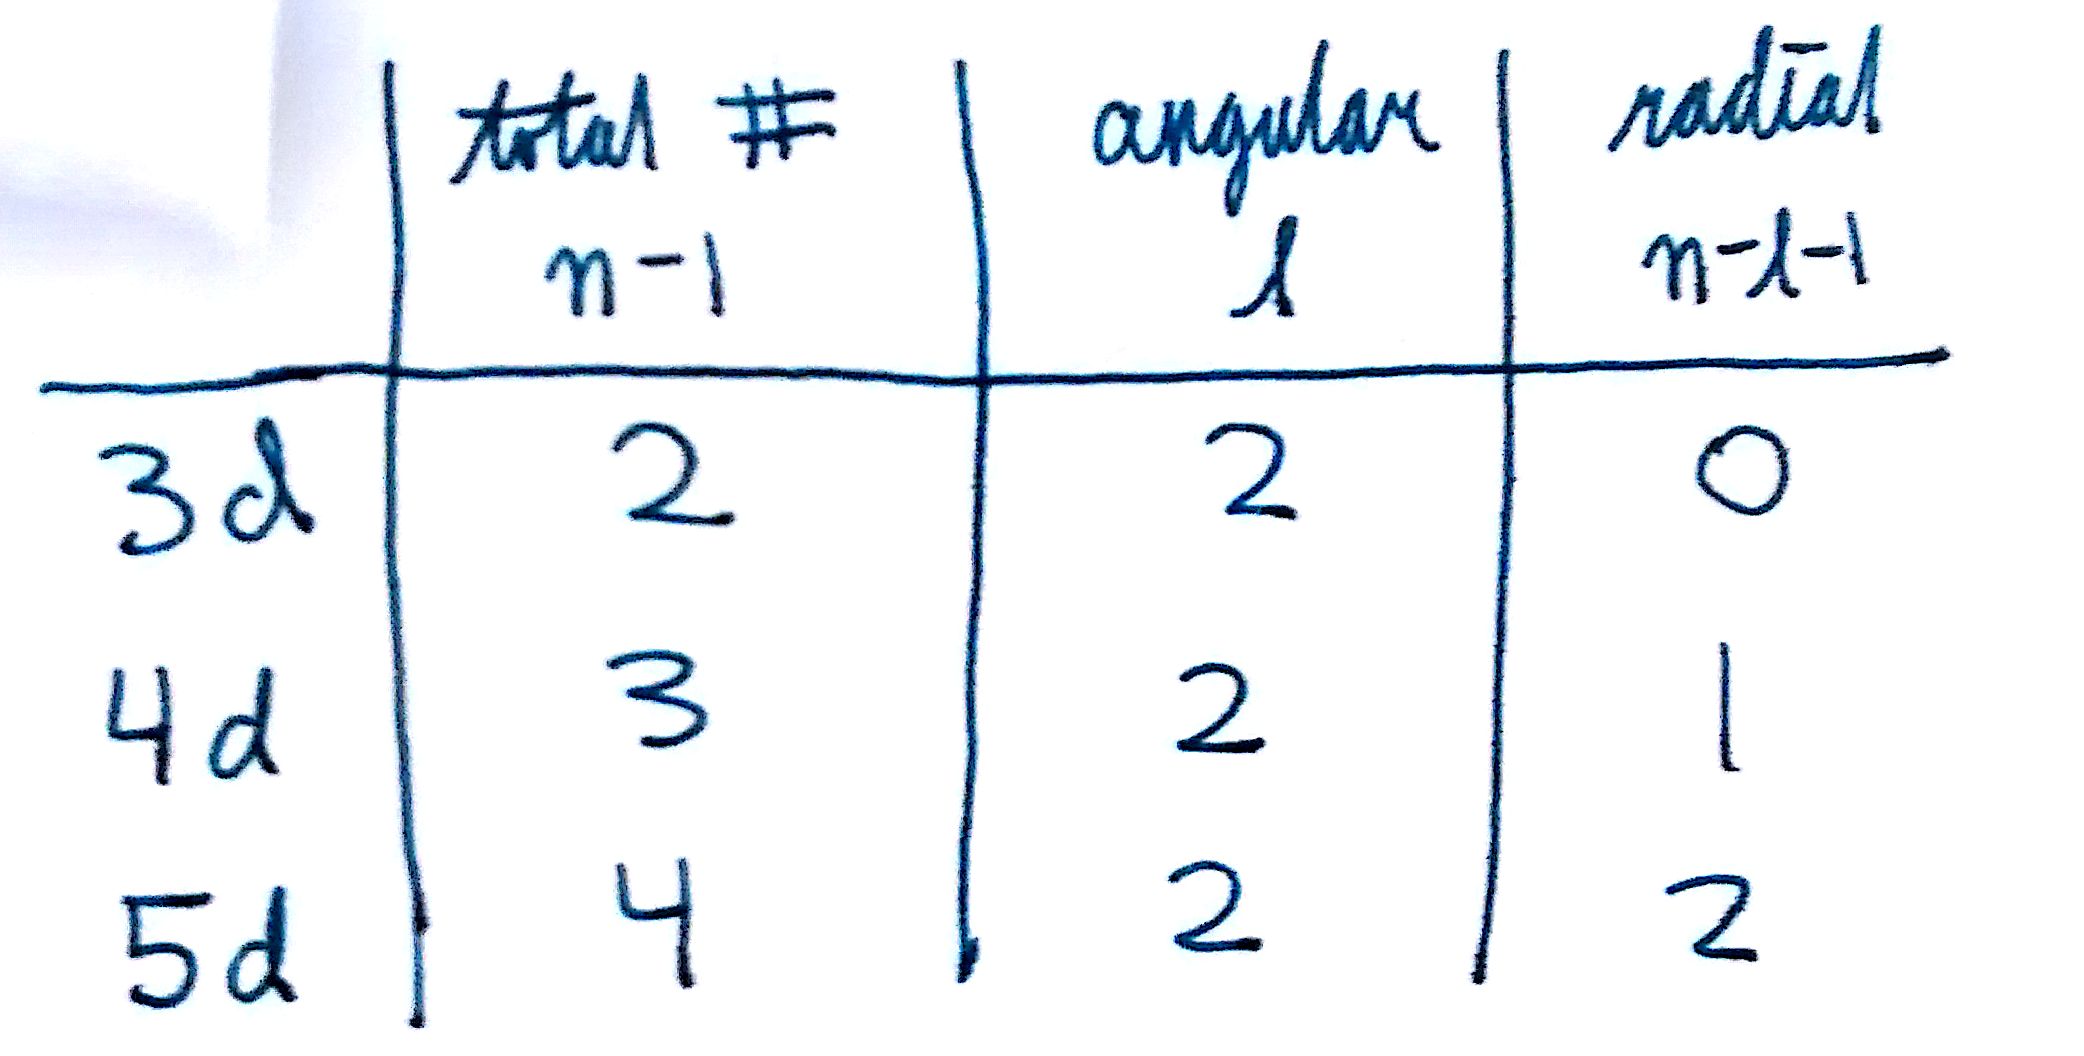 total # angular radial
n-1 l n-l-1
3d 2 2 0
4d 3 2 1
5d 4 2 2